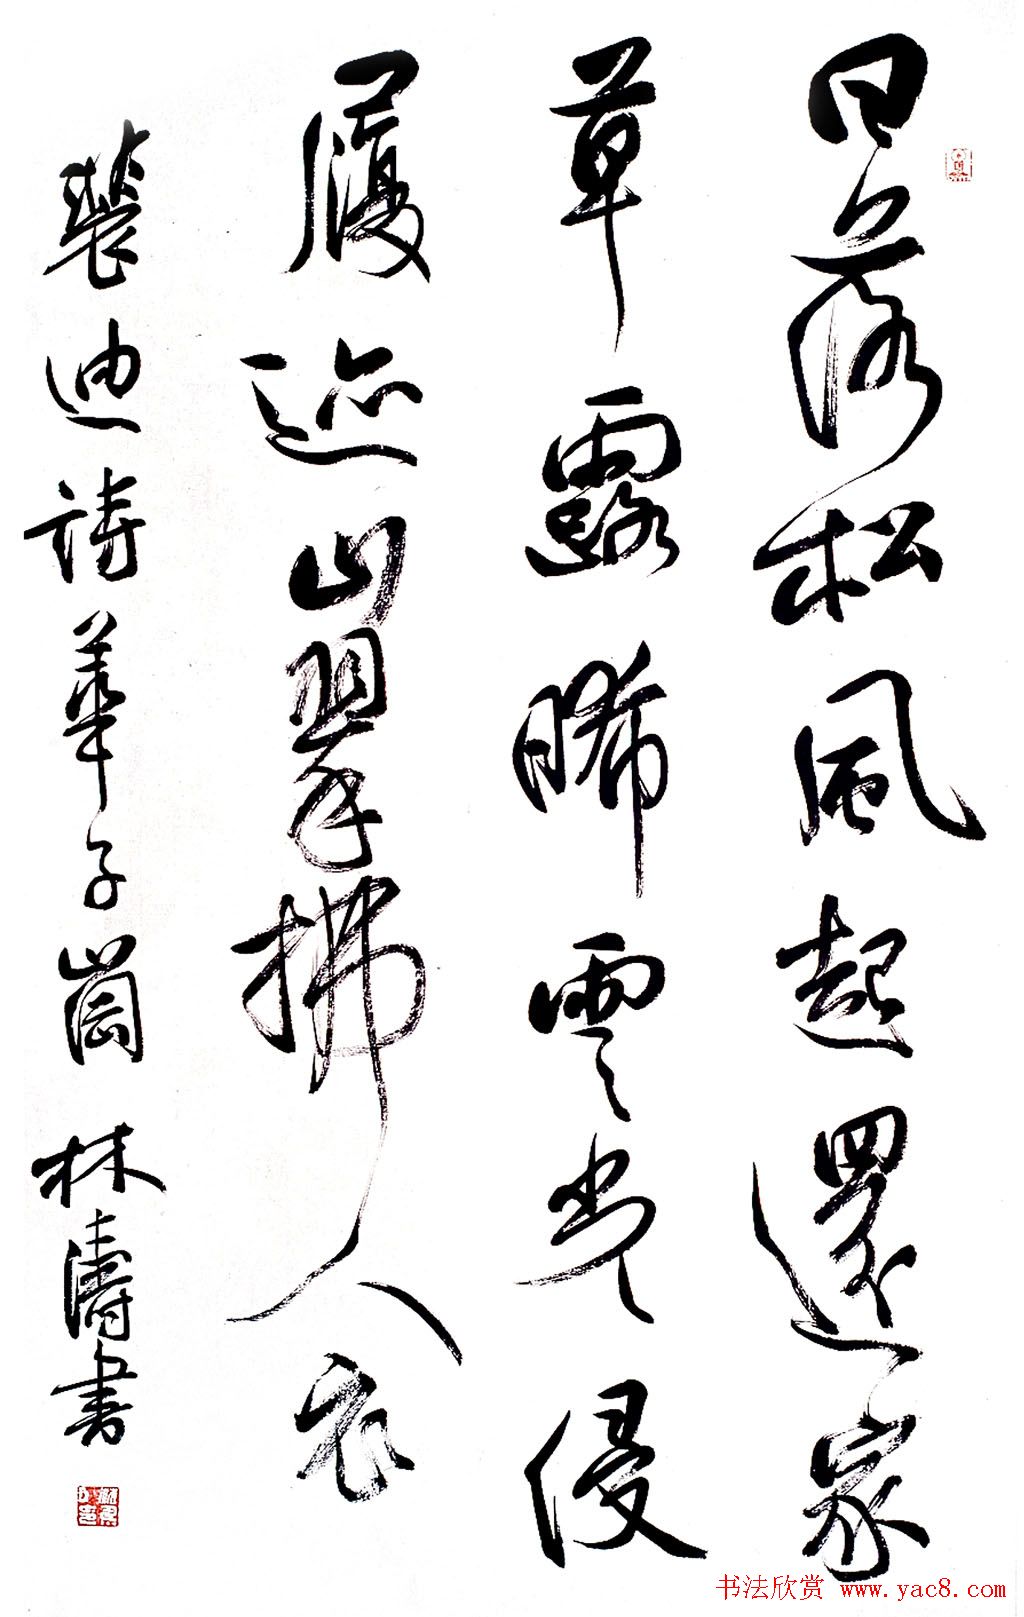 日落松風起還家
草露晞雲光侵
履迹山翠拂人衣
裴迪詩華子崗 林濤書
书法欣赏 www.yac8.com